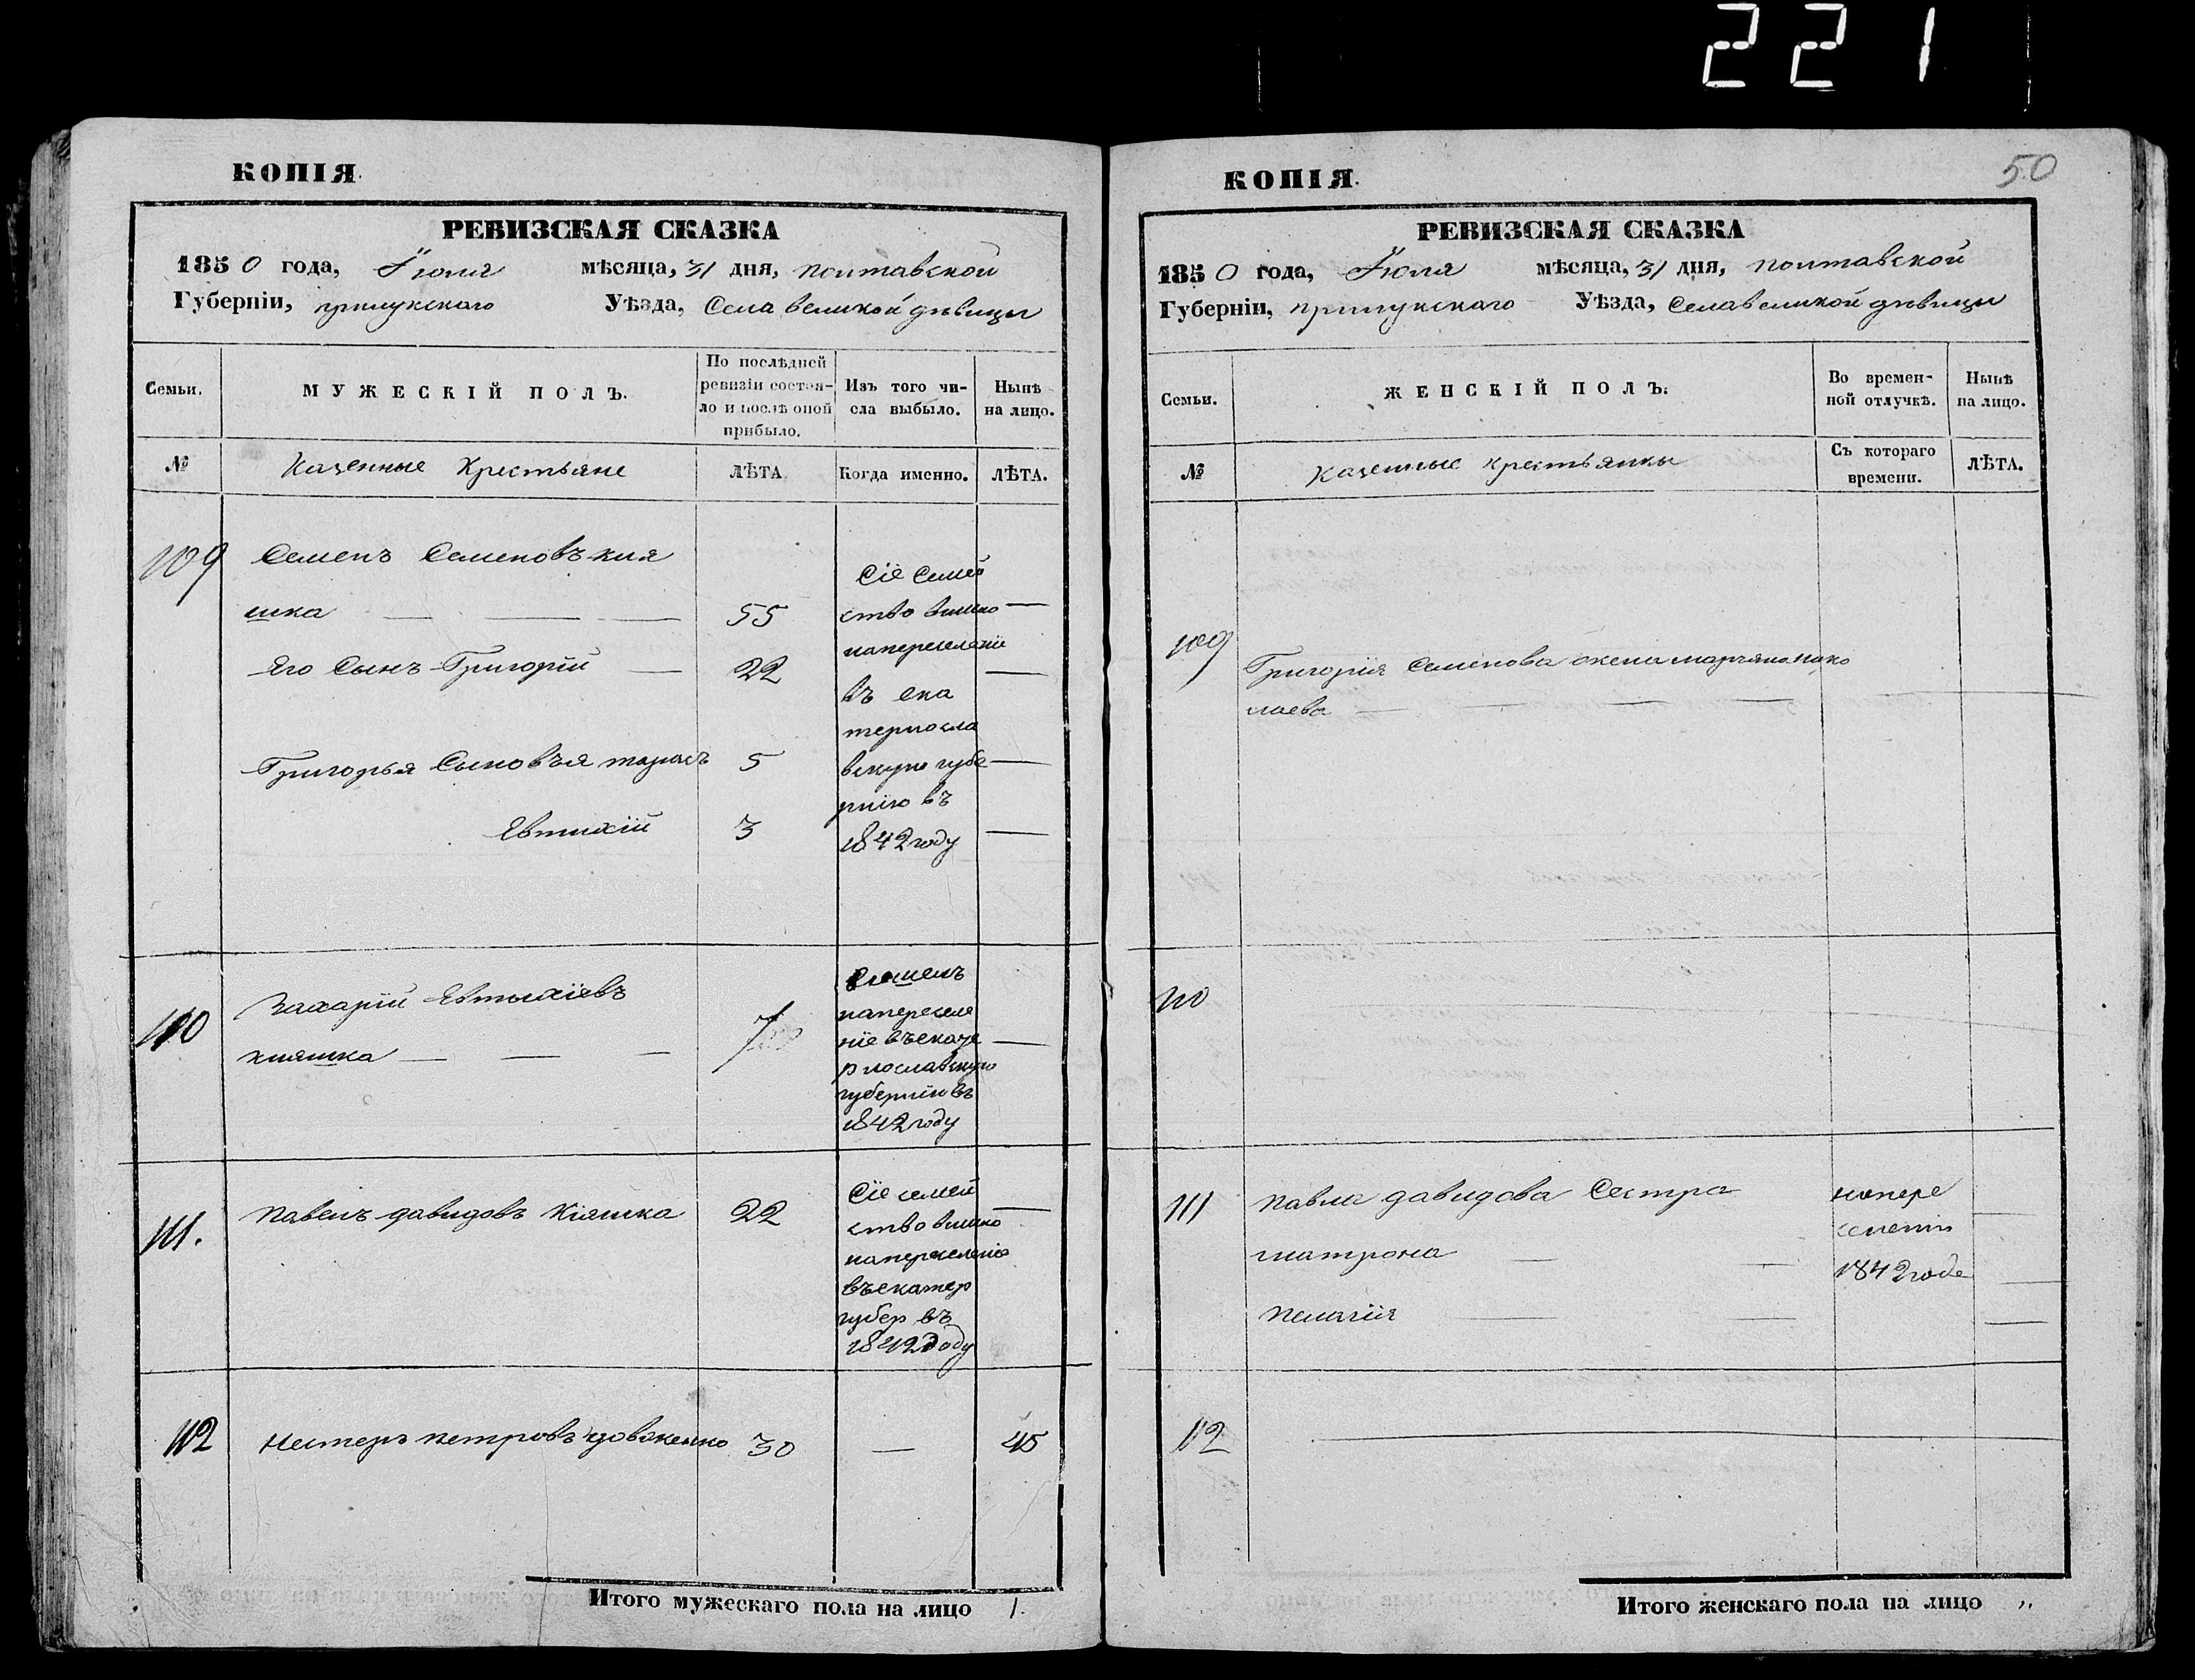 221
КОПІЯ.
РЕВИЗСКАЯ СКАЗКА
1850 года, Іюля мѣсяца, 31 дня, полтавской
Губерніи, прилукского Уѣзда, Села великой дѣвицы
Семьи.
МУЖЕСКІЙ ПОЛЪ.
По послѣдней
ревизіи состоя-
ло и послѣ оной
прибыло.
Изъ того чи-
сла выбыло.
Нынѣ
на лицо.
№
Казенные Крестьяне
ЛѢТА.
Когда именно.
ЛѢТА.
109 Семенъ Семеновъ кия
шка — — — 55 —
Его Сынъ Григорій — 22 —
Григорья Сыновья тарасъ 5 —
Евтихій 3 —
Сіе Семей
ство вишло
напереселеніе
въ ека
терносла
вскую губе
рнію въ
1842 году
110 Захарій Евтыхіевъ
кияшка — — — 7 —
напереселе
ніе въекате
рнославскую
губернію въ
1842 году
111. Павелъ давидовъ Кіяшка 22 —
Сіе семей
ство вишло
напереселеніе
въекатер
губер въ
1842 году
112 Нестеръ петровъ довженко 30 — 45
Итого мужескаго пола на лицо 1.
КОПІЯ.
50
РЕВИЗСКАЯ СКАЗКА
1850 года, Іюля мѣсяца, 31 дня, полтавской
Губерніи, прилукского Уѣзда, Села великой дѣвицы
Семьи.
ЖЕНСКІЙ ПОЛЪ.
Во времен-
ной отлучкѣ.
Нынѣ
на лицо.
№
Казенные крестьянки
Съ котораго
времени.
ЛѢТА.
109 Григорія Семенова жена марьяна нико
лаева — — — —
110
111 Павла давидова Сестра
матрона — —
Пелагія — —
напере
селеніи
1842 года
112
Итого женскаго пола на лицо „